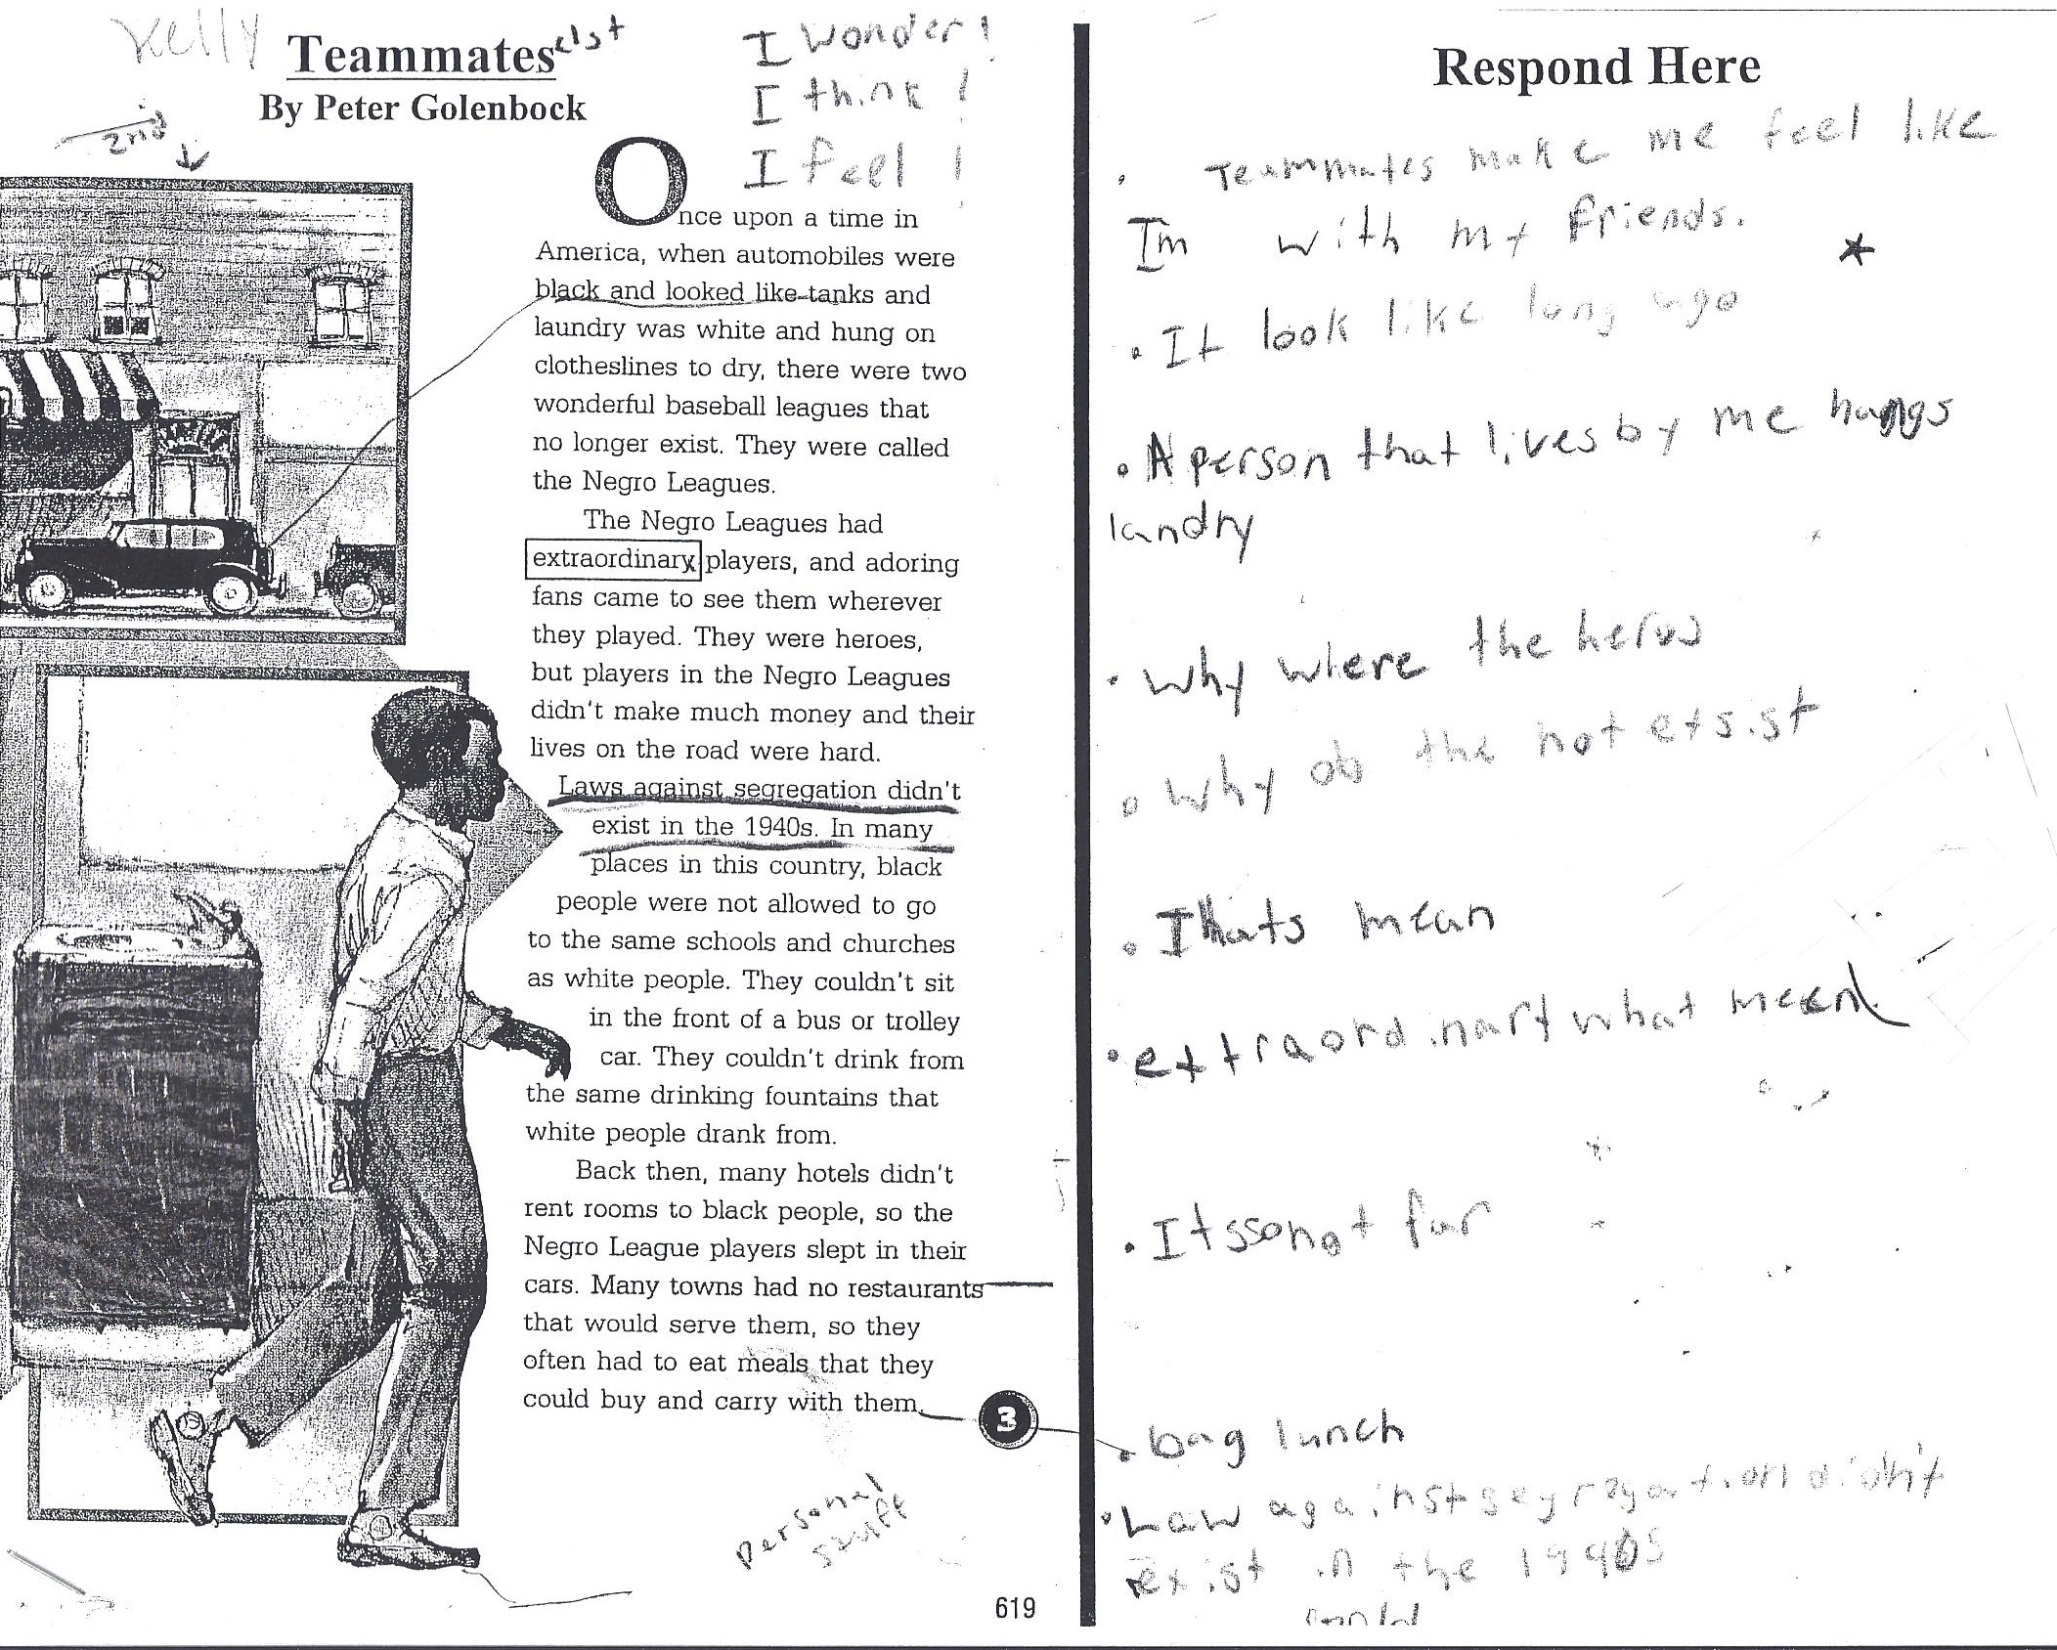 Kelly
Teammates
1st
By Peter Golenbock
2nd
I wonder!
I think!
I feel!
Once upon a time in
America, when automobiles were
black and looked like tanks and
laundry was white and hung on
clotheslines to dry, there were two
wonderful baseball leagues that
no longer exist. They were called
the Negro Leagues.
The Negro Leagues had
extraordinary players, and adoring
fans came to see them wherever
they played. They were heroes,
but players in the Negro Leagues
didn't make much money and their
lives on the road were hard.
Laws against segregation didn't
exist in the 1940s. In many
places in this country, black
people were not allowed to go
to the same schools and churches
as white people. They couldn't sit
in the front of a bus or trolley
car. They couldn't drink from
the same drinking fountains that
white people drank from.
Back then, many hotels didn't
rent rooms to black people, so the
Negro League players slept in their
cars. Many towns had no restaurants
that would serve them, so they
often had to eat meals that they
could buy and carry with them.
3
personal
stuff
619
Respond Here
• Teammates make me feel like
Im with my friends.
• It look like long ago
• A person that lives by me hungs
landry
• Why where the heros
• Why do the not etsist
• Thats mean
• extraordinary what meen
• Itssonot far
• bag lunch
• Law against segregation didn't
exist in the 1940s